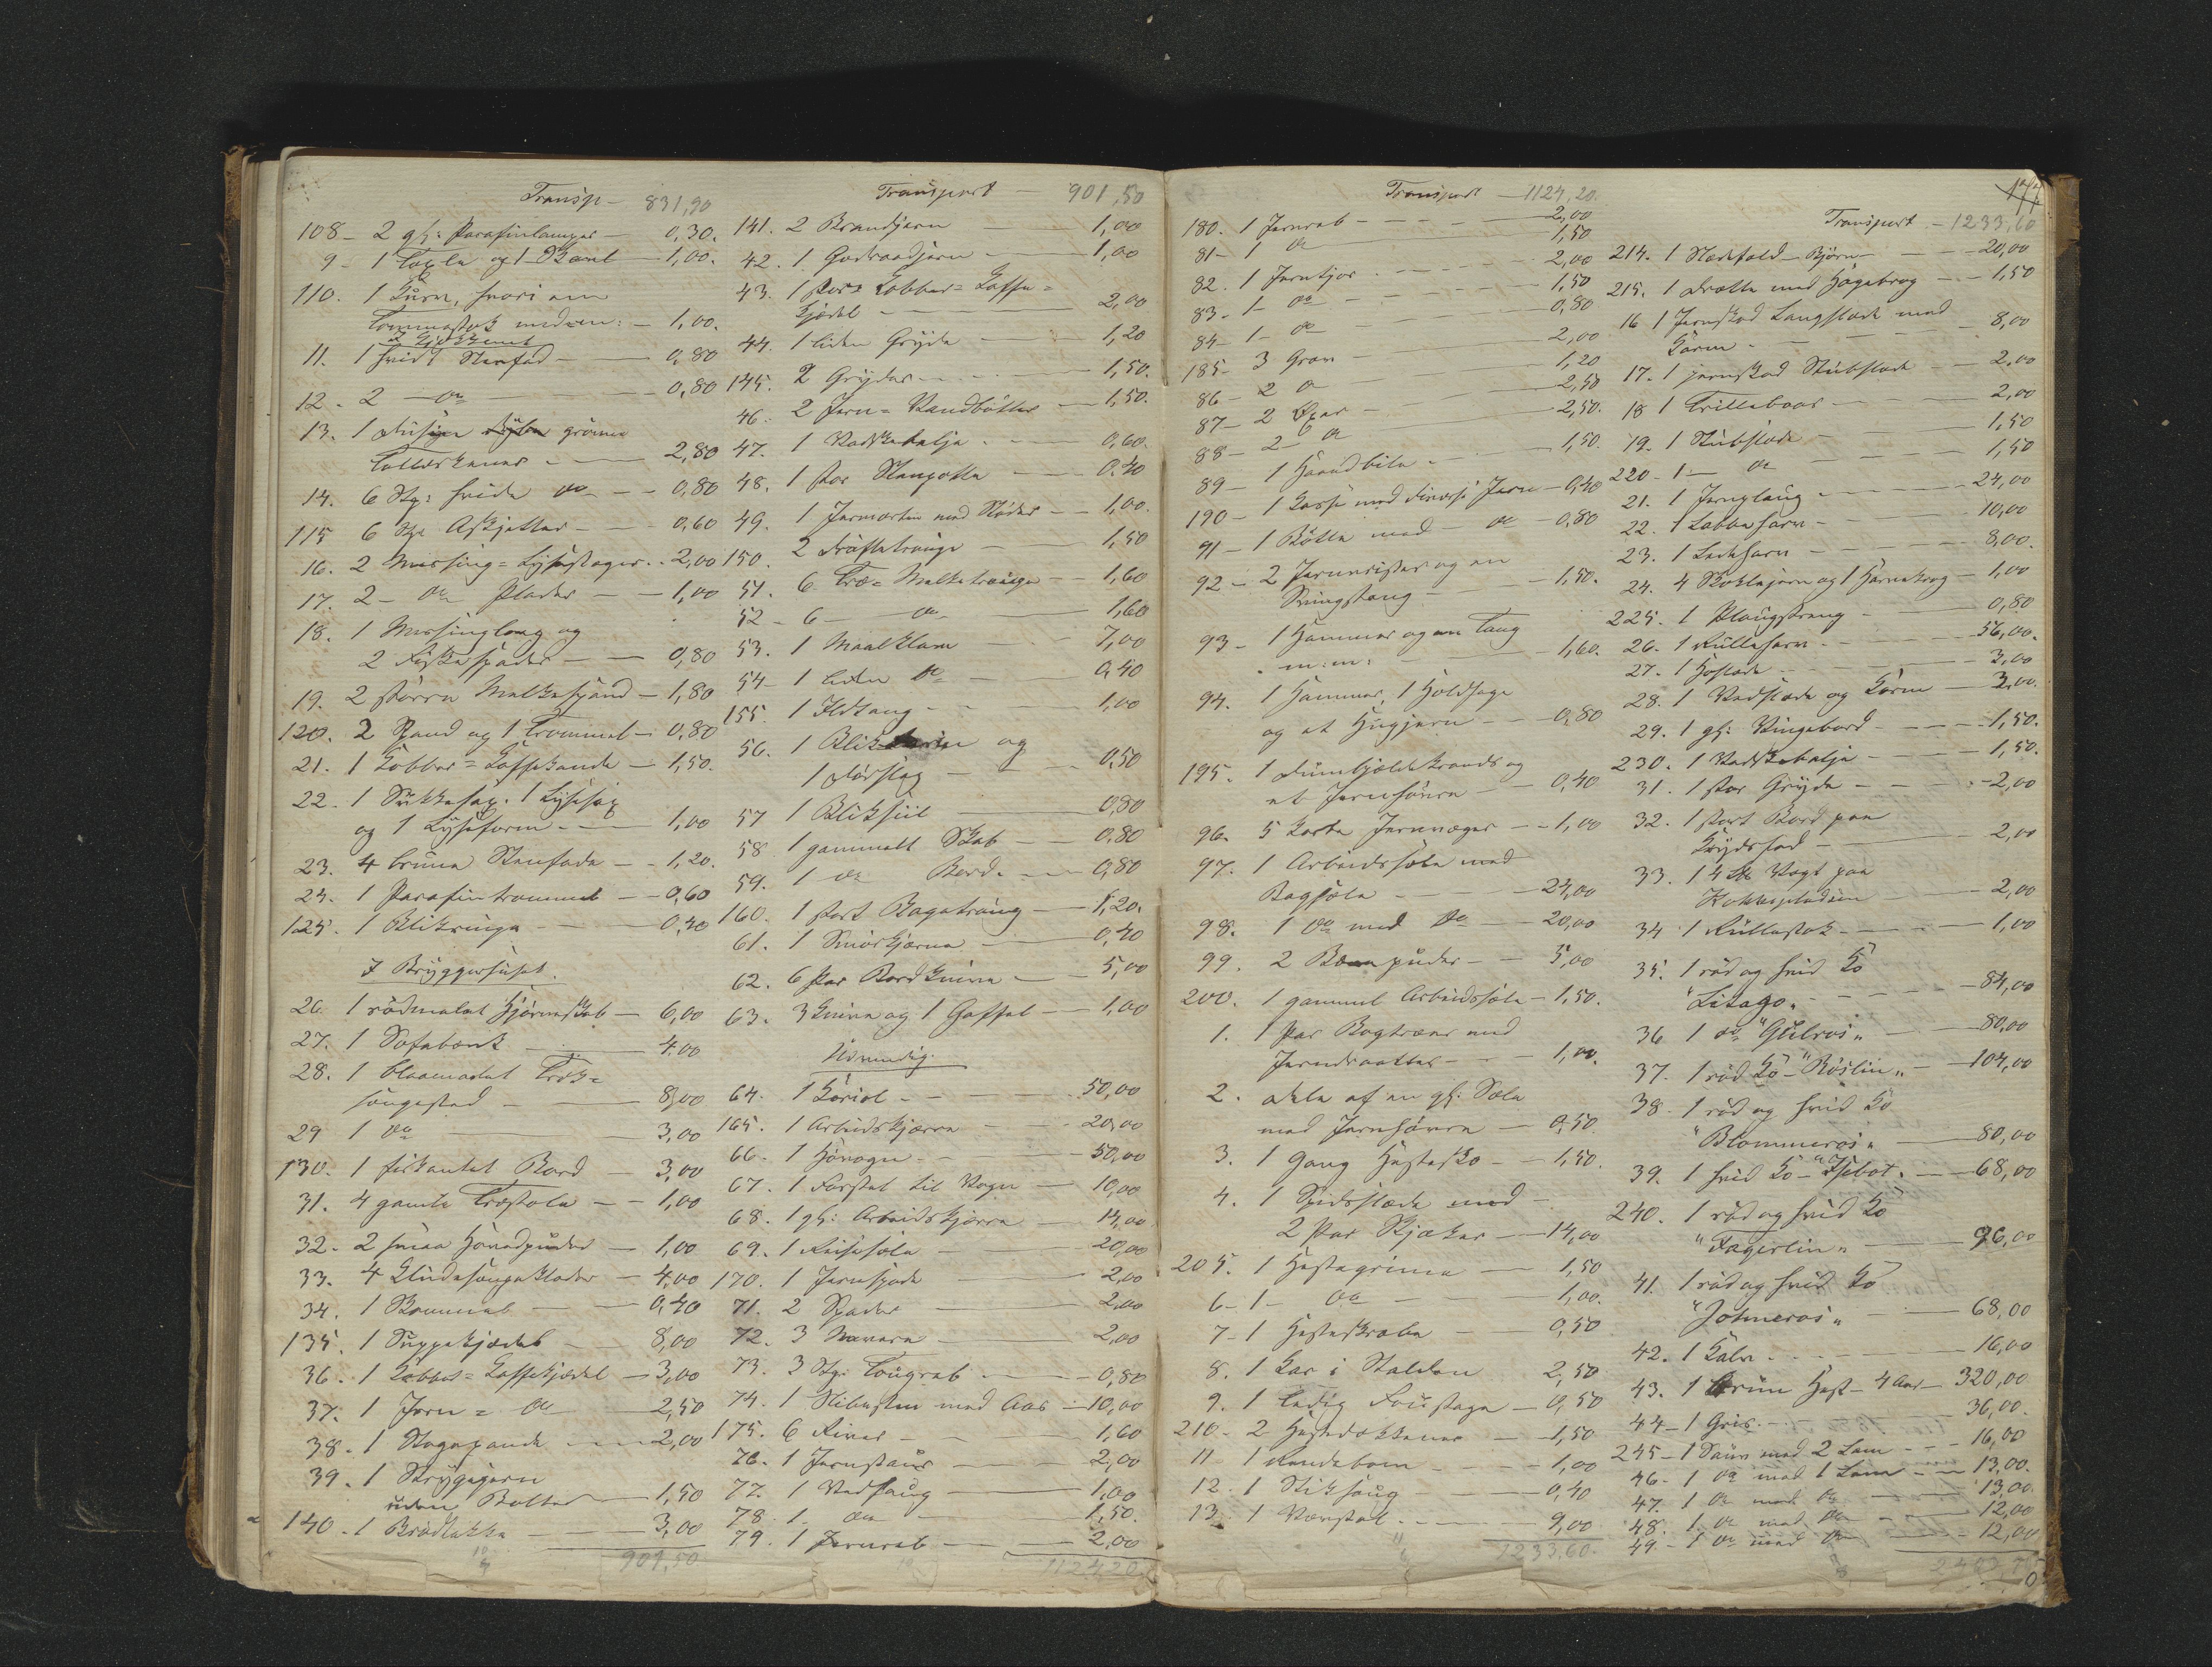 Transp — 831,90
108 — 2 gl: Parafinlamper — 0,30.
9 — 1 og 1 — 1,00.
110. 1 Kurv, hvori en
Tommestok med m: — 1,00.
I Kjøkkenet
11. 1 hvidt Stenfad — 0,80
12. 2 — do — 0,80
13. 1 Dusin grønne
Tallerkener — 2,80
14. 6 Stp: hvide do — 0,80
115 6 Stp: Asjetter — 0,60
16. 2 Messing = Lysestager — 2,00
17. 2 — do Plader — 1,00
18. 1 Messing og
2 Fiskespader — 0,80
19. 2 større Melkespand — 1,80
120. 2 Spand og 1 Trommel — 0,80
21. 1 Kobber = Kaffekande — 1,50.
22. 1 Sukkersax. 1 Lysesax
og 1 Lyseform — 1,00
23. 4 brune Stenfade — 1,20.
24. 1 Parafintrommel — 0,60
125. 1 — 0,40
I Bryggerhuset.
26. 1 rødmalet Hjørneskab — 6,00
27. 1 Sofabænk — 4,00
28. 1 blaamalet Træk=
sengested — 8,00
29 1 do — 3,00
130. 1 firkantet Bord — 3,00
31. 4 gamle Træstole — 1,00
32. 2 smaa Hovedpuder — 1,00
33. 4 Sengeklæder — 4,00
34. 1 — 0,40
135. 1 Suppekjedel — 8,00
36. 1 Kobber = Kaffekjedel — 3,00
37. 1 Jern = do — 2,50
38. 1 Stegepande — 2,00
39. 1 Strygejern
uden Bolter — 1,50
140. 1 — 3,00
901,50
Transport — 901,50
141. 2 Brandjern — 1,00
42. 1 Goderaadjern — 1,00
43. 1 stor Kobber = Kaffe =
kjedel — 2,00
44. 1 liden Gryde — 1,20
145. 2 Gryder — 1,50.
46. 2 Jern = Vandbøtter — 1,50.
47. 1 Vadskebalje — 0,60.
48. 1 stor Stenpotte — 0,40
49. 1 Jernmorter med Støder — 1,00.
150. 2 — 1,50
51. 6 Træ = Melketrouge — 1,60
52 — 6 — do — 1,60
53. 1 — 7,00
54 — 1 liden do — 0,40
155. 1 Ildtang — 1,00
56. 1 Blik og
1 Dørslag — 0,50
57 1 Bliksiil — 0,80
58 1 gammelt Skab — 0,80
59. 1 do Bord — 0,80
160. 1 stort Bagetroug — 1,20.
61. 1 Smørkjærne — 0,40
62. 6 Par Bordknive — 5,00
63. 3 Knive og 1 Gaffel — 1,00
Udvendig.
64. 1 Kariol — 50,00
165. 1 Arbeidskjærre — 20,00
66. 1 Høvogn — 50,00
67. 1 Forstel til Vogn — 10,00
68. 1 gl: Arbeidskjærre — 14,00
69. 1 Reisesæle — 20,00
170. 1 Jernspade — 2,00
71. 2 Spader — 2,00
72. 3 — 2,00
73. 3 Stp: Tougreb — 0,80
74. 1 Slibesten med Aas — 10,00
175. 6 River — 1,60
76. 1 Jernstaur — 2,00
77. 1 Vedsaug — 1,00
78. 1 do — 1,50.
79. 1 Jerngreb — 2,00
1124,20
Transport — 1124,20.
180. 1 Jerngreb — 2,00
81 — 1 do — 1,50
82. 1 — 2,00
83. — 1 — do — 1,50
84 — 1 — do — 0,80
185 — 3 — 2,00
86 — 2 do — 1,20
87 — 2 Øxer — 2,50
88 — 2 — do — 2,50.
89 — 1 Haandbile — 1,50.
190 — 1 Kasse med diverse Jern — 0,40
91 — 1 Bøtte med — do — 0,80
92 — 2 og en
Svingstang — 1,50.
93 — 1 Hammer og en Tang
m:m: — 1,60.
94. 1 Hammer, 1 Holdsage
og et Hugjern — 0,80
195. 1 og
et Jern — 0,40
96. 5 — 1,00
97. 1 Arbeidssæle med
Bagsæle — 24,00
98. 1 do med do — 20,00
99. 2 puder — 5,00
200. 1 gammel Arbeidssæle — 1,50.
1. 1 Par Bogtræer med
Jerndraatter — 1,00.
2. Dele af en gl: Sæle
med — 0,50.
3. 1 Gang Hestesko — 1,50.
4. 1 Spidsslæde med
2 Par Skjæker — 14,00
205. 1 Hestegrime — 1,50
6 — 1 — do — 1,00.
7 — 1 Hesteskrabe — 0,50
8. 1 Kar i Stalden 2,50
9. 1 ledig Foustage — 0,50
210 — 2 Hestedækkener — 1,50
11 1 — 1,00
12. 1 Stiksaug — 0,40
13. 1 Vævstol — 9,00.
1233,60.
177
Transport — 1233,60
214. 1 — 20,00
215. 1 Drætte med — 1,50
16 1 Jernskod Langslæde med
Karm — 8,00
17. 1 jernskod Stubslæde — 2,00
18 1 Trillebaar — 2,00
19. 1 Stubslæde — 1,50
220 — 1 — do — 1,50
21. 1 Jernploug — 24,00
22. 1 Labbeharv — 10,00
23. 1 Ledeharv — 8,00.
24. 4 og 1 — 1,00
225. 1 Plougstreng — 0,80
26. 1 Rulleharv — 56,00.
27. 1 Høslæde — 3,00
28. 1 Vedslæde og Karm — 3,00.
29. 1 gl: Vingebord — 1,50.
230. 1 Vadskebalje — 1,50.
31. 1 stor Gryde — 2,00
32. 1 stort Bord paa
Krydsfod — 2,00
33. 1 Vægt paa
— 2,00
34 1 Rullestok — 1,00
35. 1 rød og hvid Ko
"Litago" — 84,00
36 1 do "Gulros" — 80,00
37. 1 rød Ko — "Røslin" — 104,00
38. 1 rød og hvid Ko
"Blommeros" — 80,00
39. 1 hvid Ko — — 68,00
240. 1 rød og hvid Ko
"Fagerlin" — 96,00
41. 1 rød og hvid Ko
— 68,00
42. 1 Kalv — 16,00
43. 1 brun Hest — 4 Aar — 320,00
44 — 1 Gris — 36,00.
245 — 1 Sau med 2 Lam — 16,00
46 — 1 do med 1 Lam — 13,00.
47. 1 do med do — 13,00.
48. 1 do med do — 12,00
49. — 1 do med do — 12,00